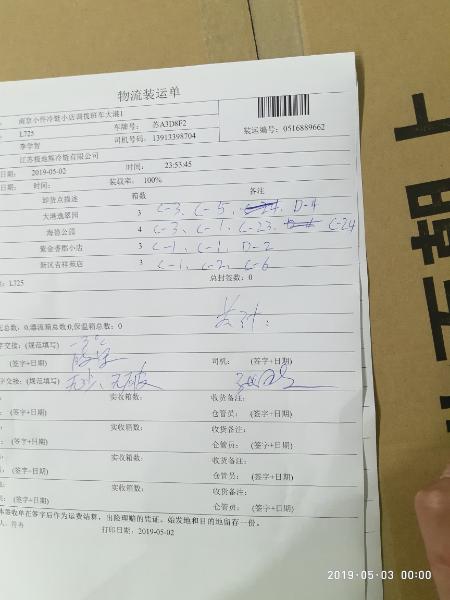 物流装运单
南京小件冷链小店调拨班车大港1
L725
车牌号: 苏A3D8F2
李学智
司机号码: 13913398704
装运编号: 0516889662
日期: 2019-05-02
时间: 23:53:45
日期: 时间:
装载率: 100%
卸货点描述 箱数 备注
大港逸翠园 3 C-3、C-5、D-4
海德公园 4 C-3、C-7、C-23、C-24
紫金香郡小店 3 C-1、C-1、D-2
新区吉祥苑店 3 C-1、C-2、C-6
L725
总封签数: 0
总数: 0,灌流箱总数:0,保温箱总数: 0
字交接: (规范填写) -3℃
(签字+日期)
司机: (签字+日期)
字交接: (规范填写) 无少、无破
实收箱数: 收货备注:
(签字+日期) 仓管员: (签字+日期)
实收箱数: 收货备注:
(签字+日期) 仓管员: (签字+日期)
实收箱数: 收货备注:
(签字+日期) 仓管员: (签字+日期)
实收箱数: 收货备注:
(签字+日期) 仓管员: (签字+日期)
本签收单在签字后作为运费结算, 出险理赔的凭证。始发地和目的地留存一份。
打印日期: 2019-05-02
朝上
2019-05-03 00:00